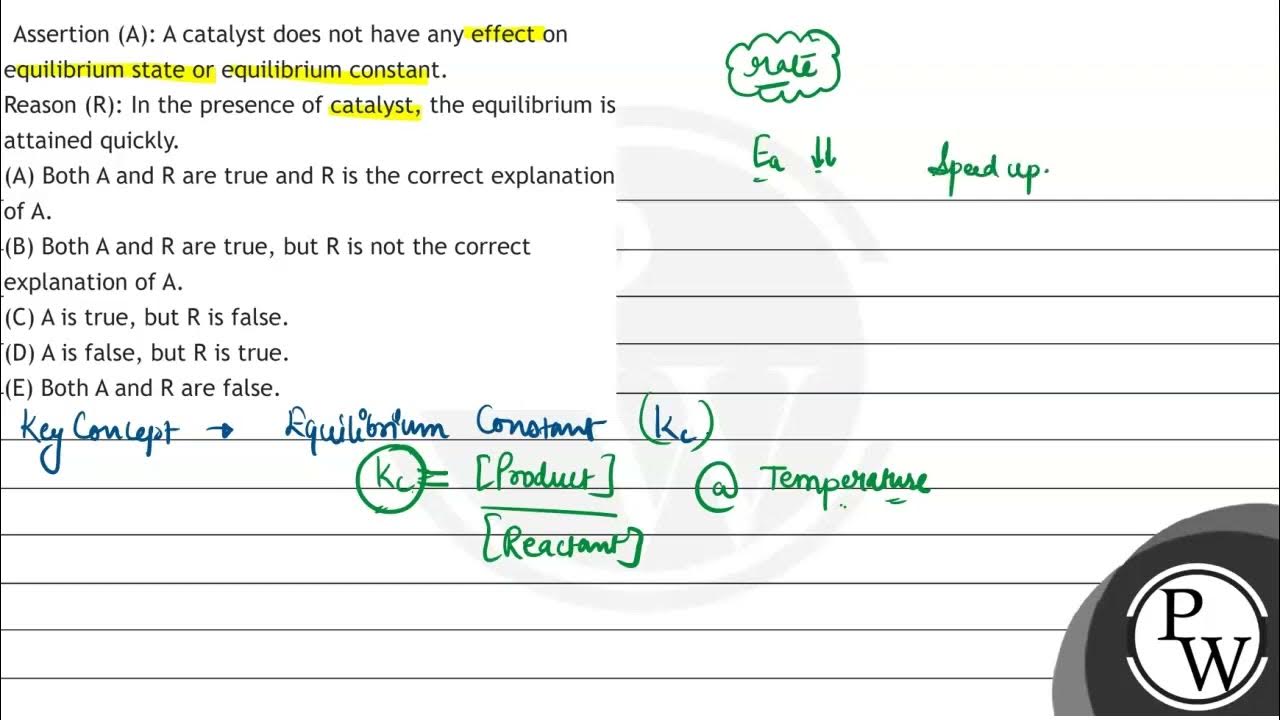 Assertion (A): A catalyst does not have any effect on
equilibrium state or equilibrium constant.
Reason (R): In the presence of catalyst, the equilibrium is
attained quickly.
(A) Both A and R are true and R is the correct explanation
of A.
(B) Both A and R are true, but R is not the correct
explanation of A.
(C) A is true, but R is false.
(D) A is false, but R is true.
(E) Both A and R are false.
rate
Ea ↓↓
Speed up.
Key Concept → Equilibrium Constant (Kc)
Kc = [Product]
[Reactant]
@ Temperature
P
W
PW